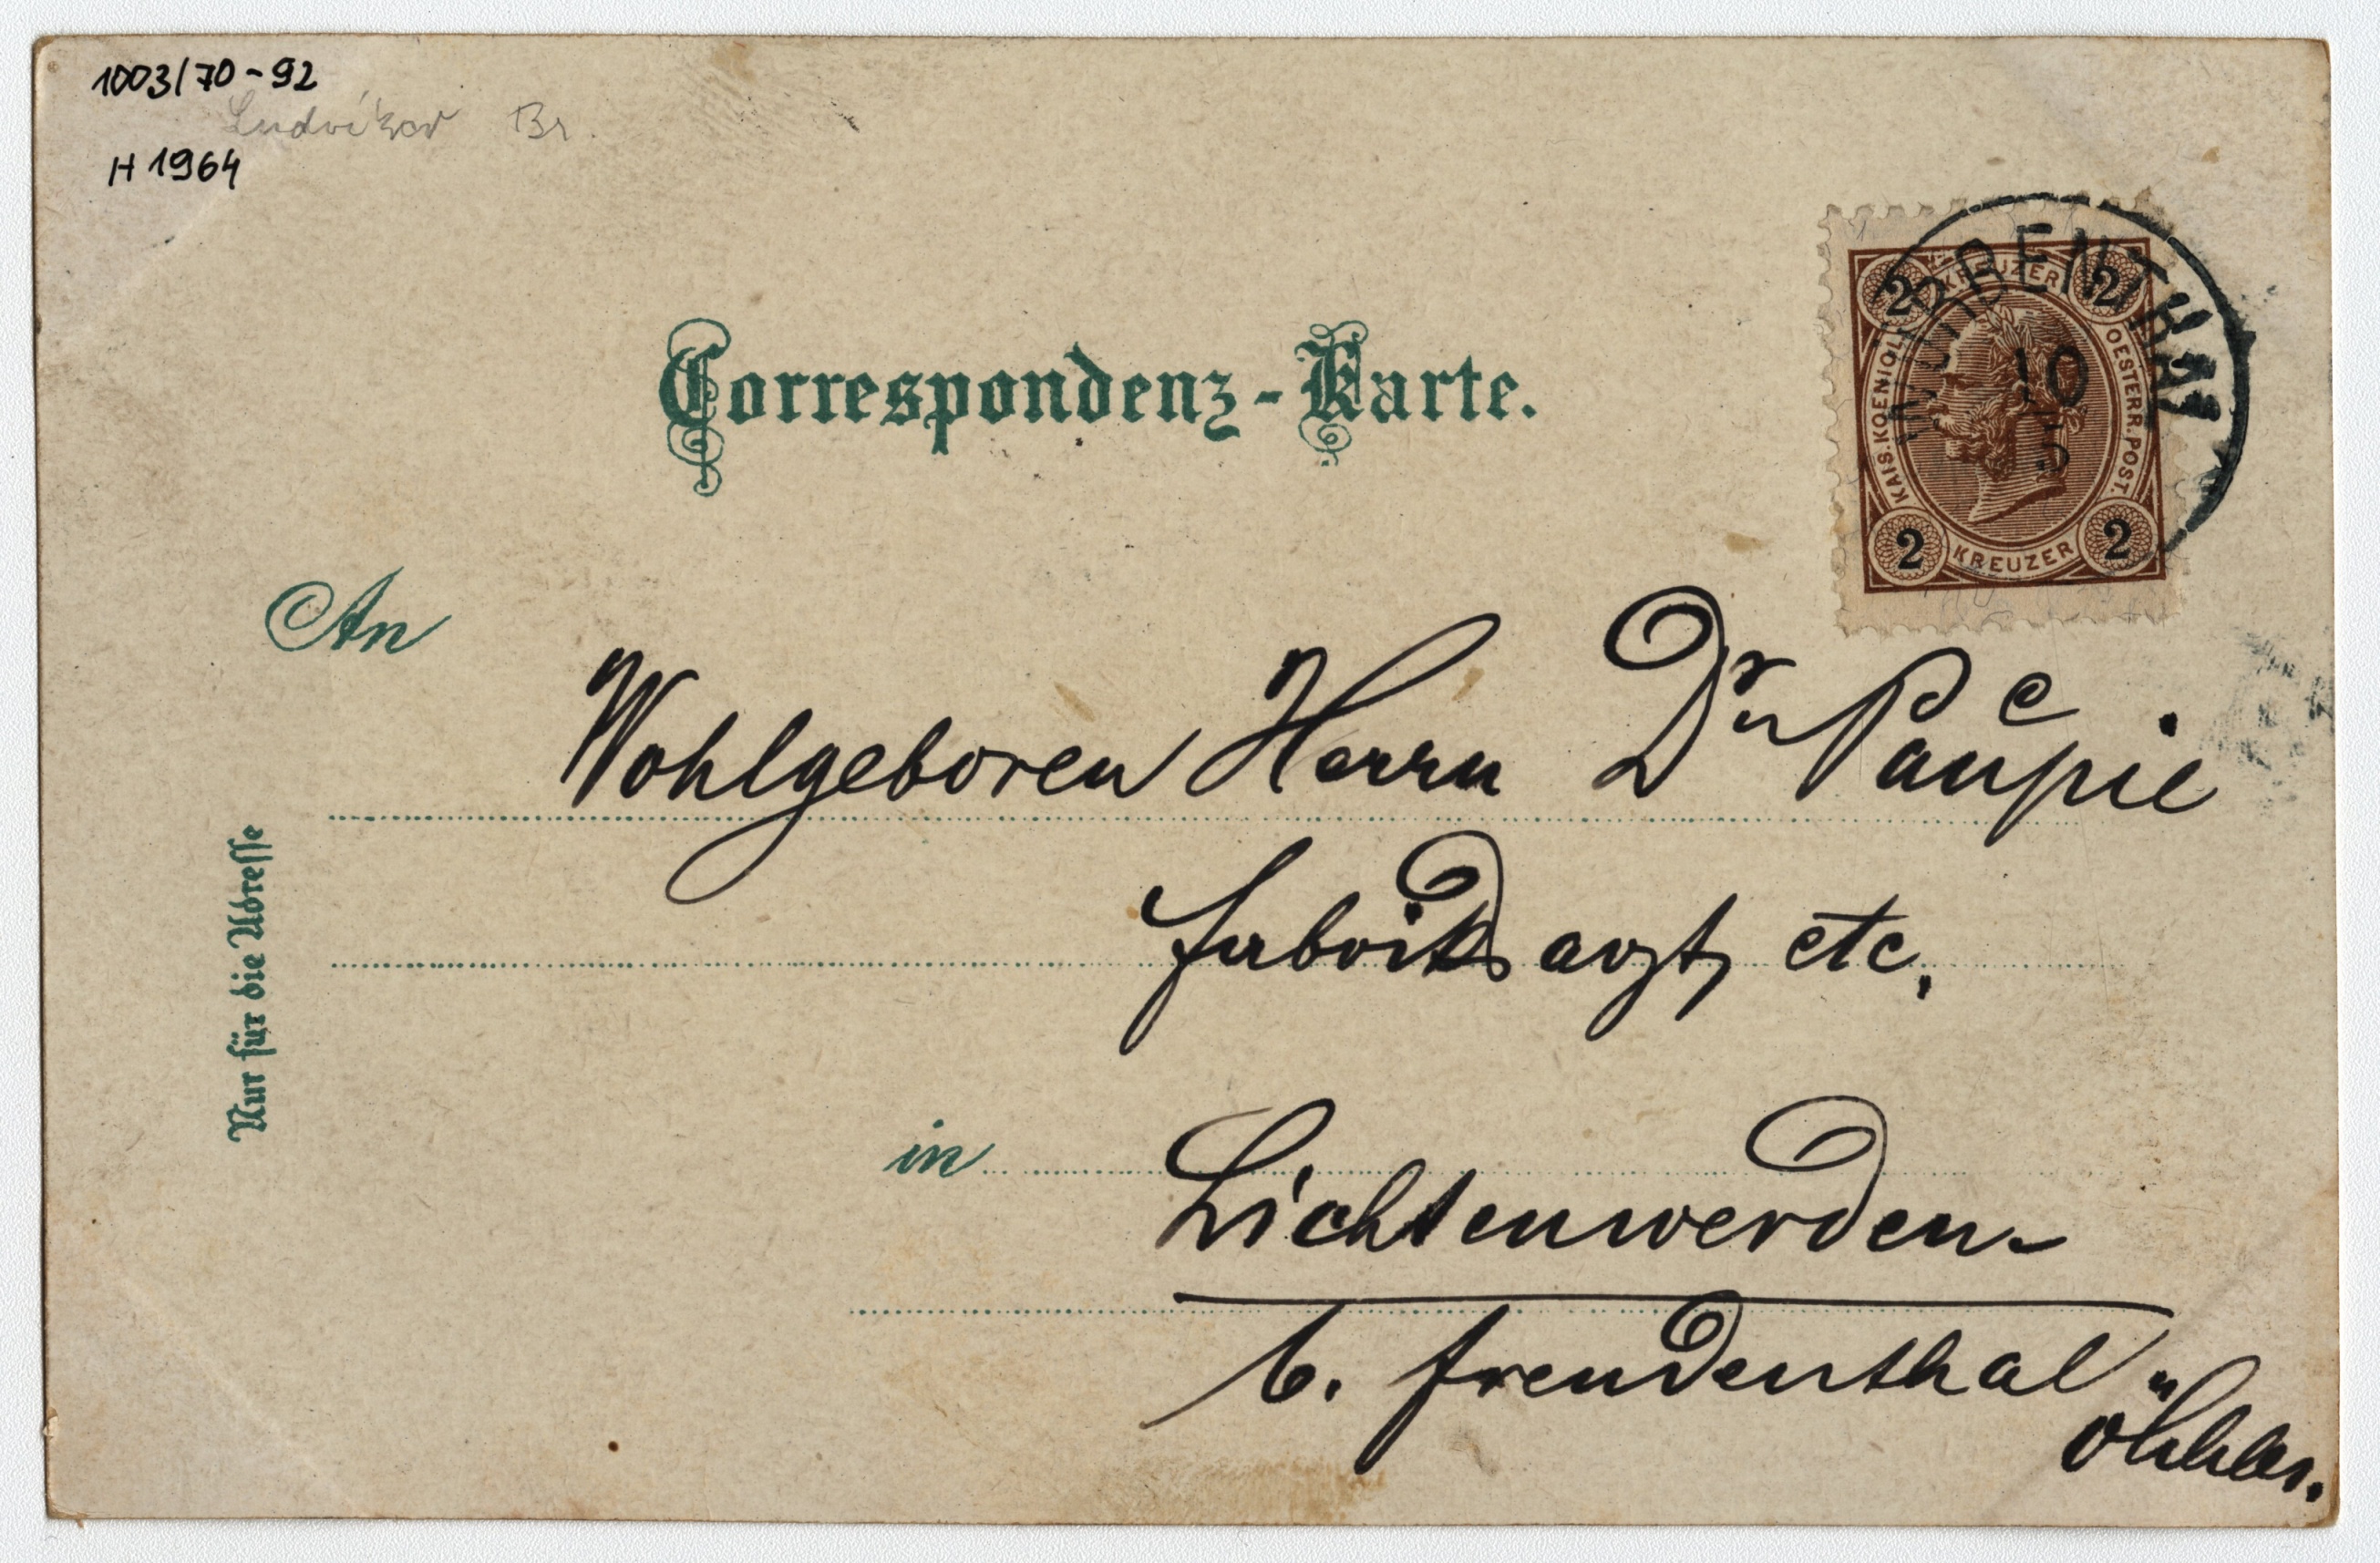 1003/70-92
Br.
H 1964
Correspondenz-Karte.
2 KREUZER 2
KAIS. KOENIGL. OESTERR. POST.
2 KREUZER 2
WÜRBENTHAL
10
5
An
Wohlgeboren Herrn Dr Paupie
Fabriksarzt, etc.
Nur für die Adresse
in Lichtenwerden
b. Freudenthal